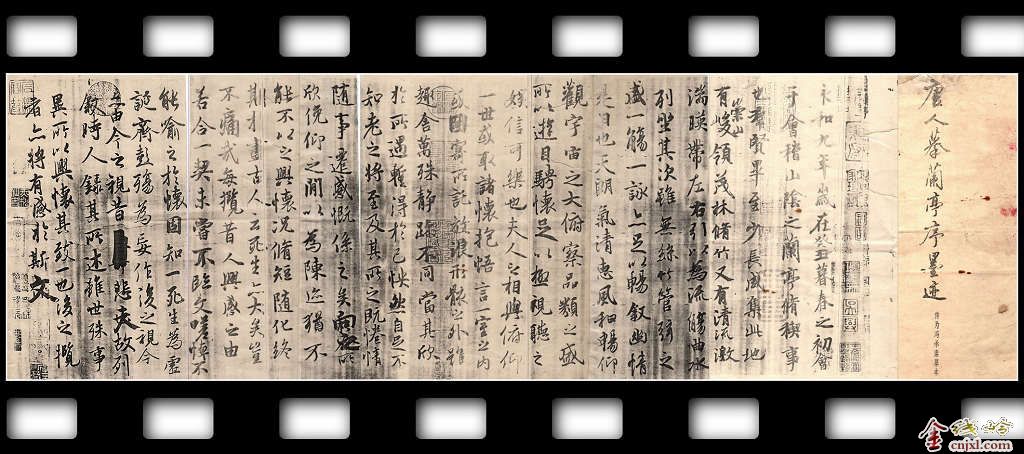 唐人摹蘭亭序墨迹
永和九年歲在癸丑暮春之初會
于會稽山陰之蘭亭脩稧事
也羣賢畢至少長咸集此地
有崇山峻領茂林脩竹又有清流激
湍暎帶左右引以為流觴曲水
列坐其次雖無絲竹管弦之
盛一觴一詠亦足以暢敘幽情
是日也天朗氣清惠風和暢仰
觀宇宙之大俯察品類之盛
所以遊目騁懷足以極視聽之
娛信可樂也夫人之相與俯仰
一世或取諸懷抱悟言一室之內
或因寄所託放浪形骸之外雖
趣舍萬殊静躁不同當其欣
於所遇蹔得於己怏然自足不
知老之將至及其所之既惓情
隨事遷感慨係之矣向之所
欣俛仰之間以為陳迹猶不
能不以之興懷況脩短隨化終
期於盡古人云死生亦大矣豈
不痛哉每攬昔人興感之由
若合一契未嘗不臨文嗟悼不
能喻之於懷固知一死生為虛
誕齊彭殤為妄作後之視今
亦由今之視昔悲夫故列
敘時人錄其所述雖世殊事
異所以興懷其致一也後之攬
者亦將有感於斯文
cnjxl.com